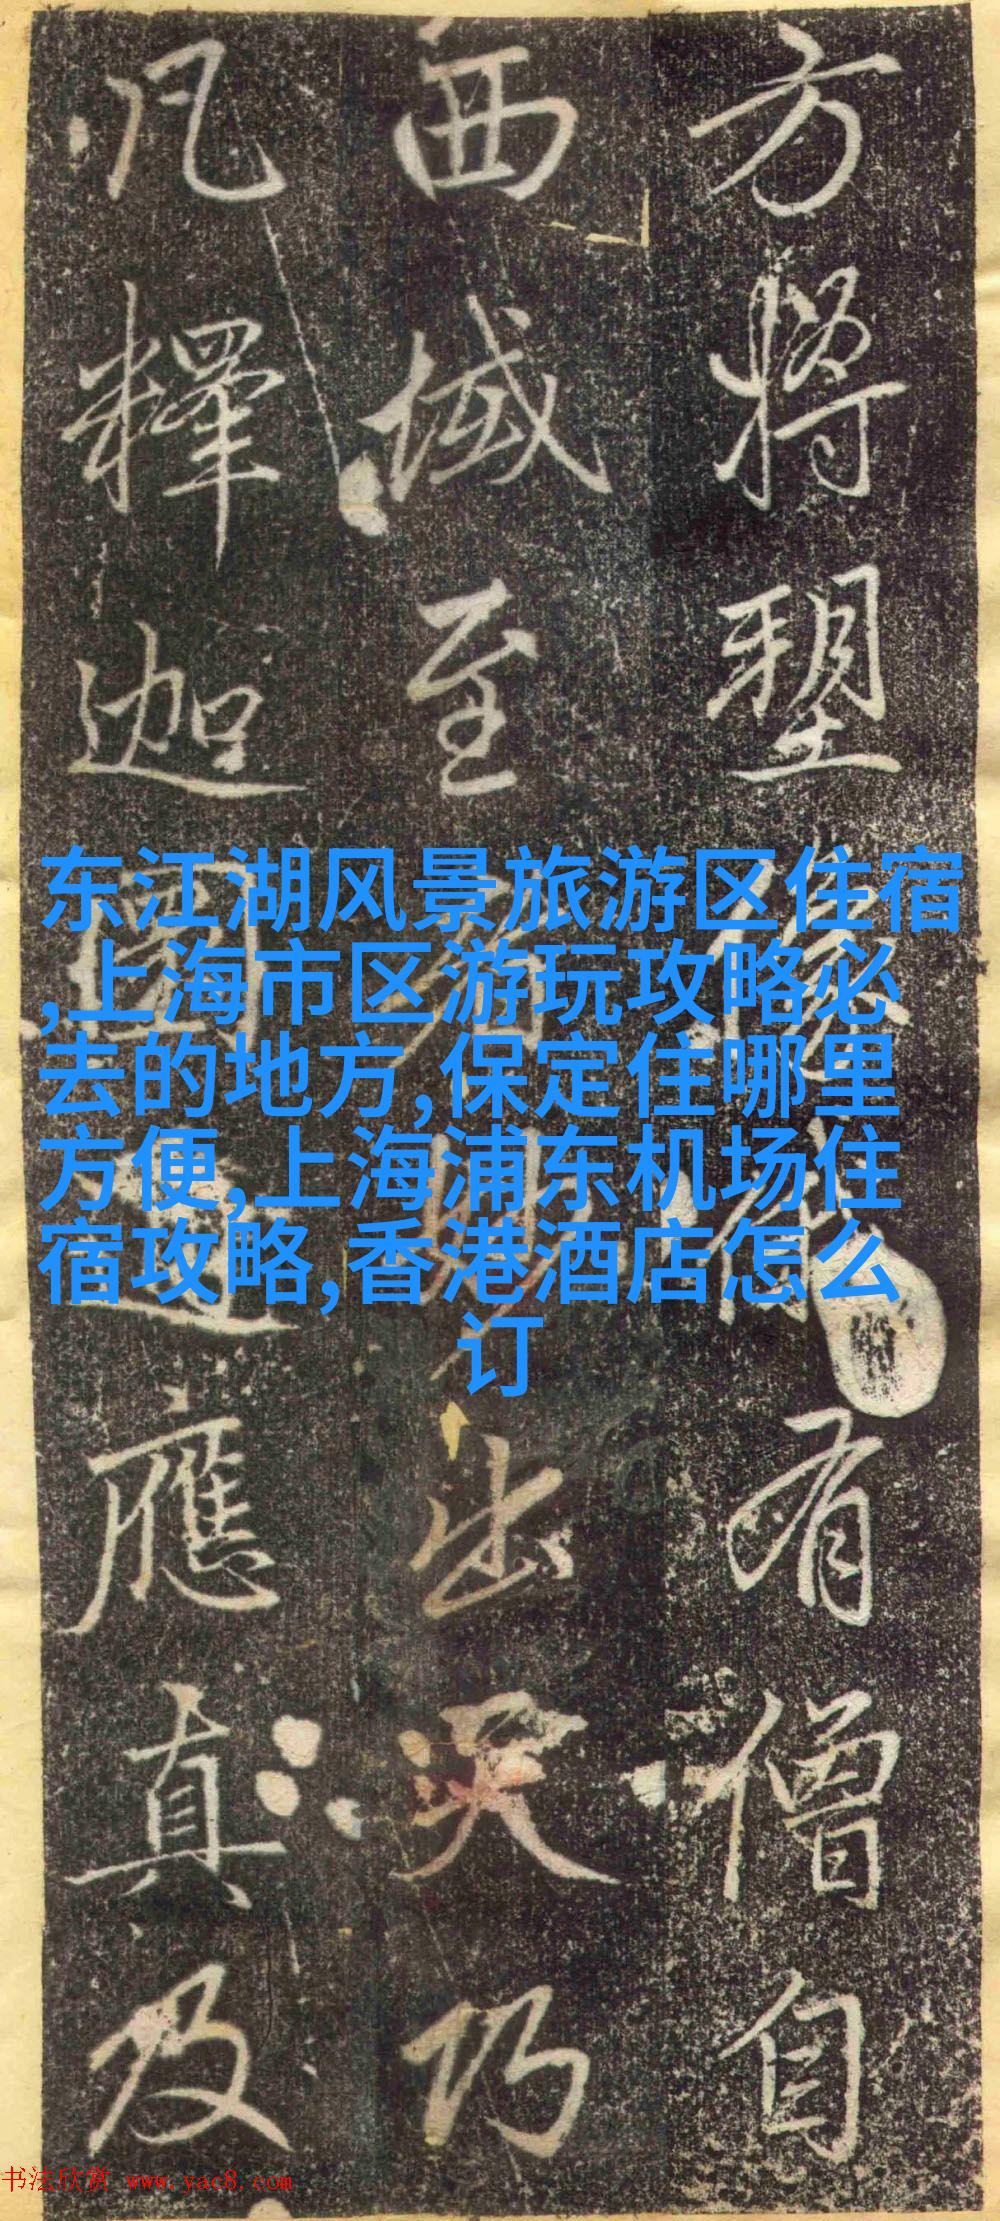 方將塑
有僧自
西域至
出天巧
凡釋迦
應真及
东江湖风景旅游区住宿
,上海市区游玩攻略必
去的地方,保定住哪里
方便,上海浦东机场住
宿攻略,香港酒店怎么
订
书法欣赏 www.yac8.com